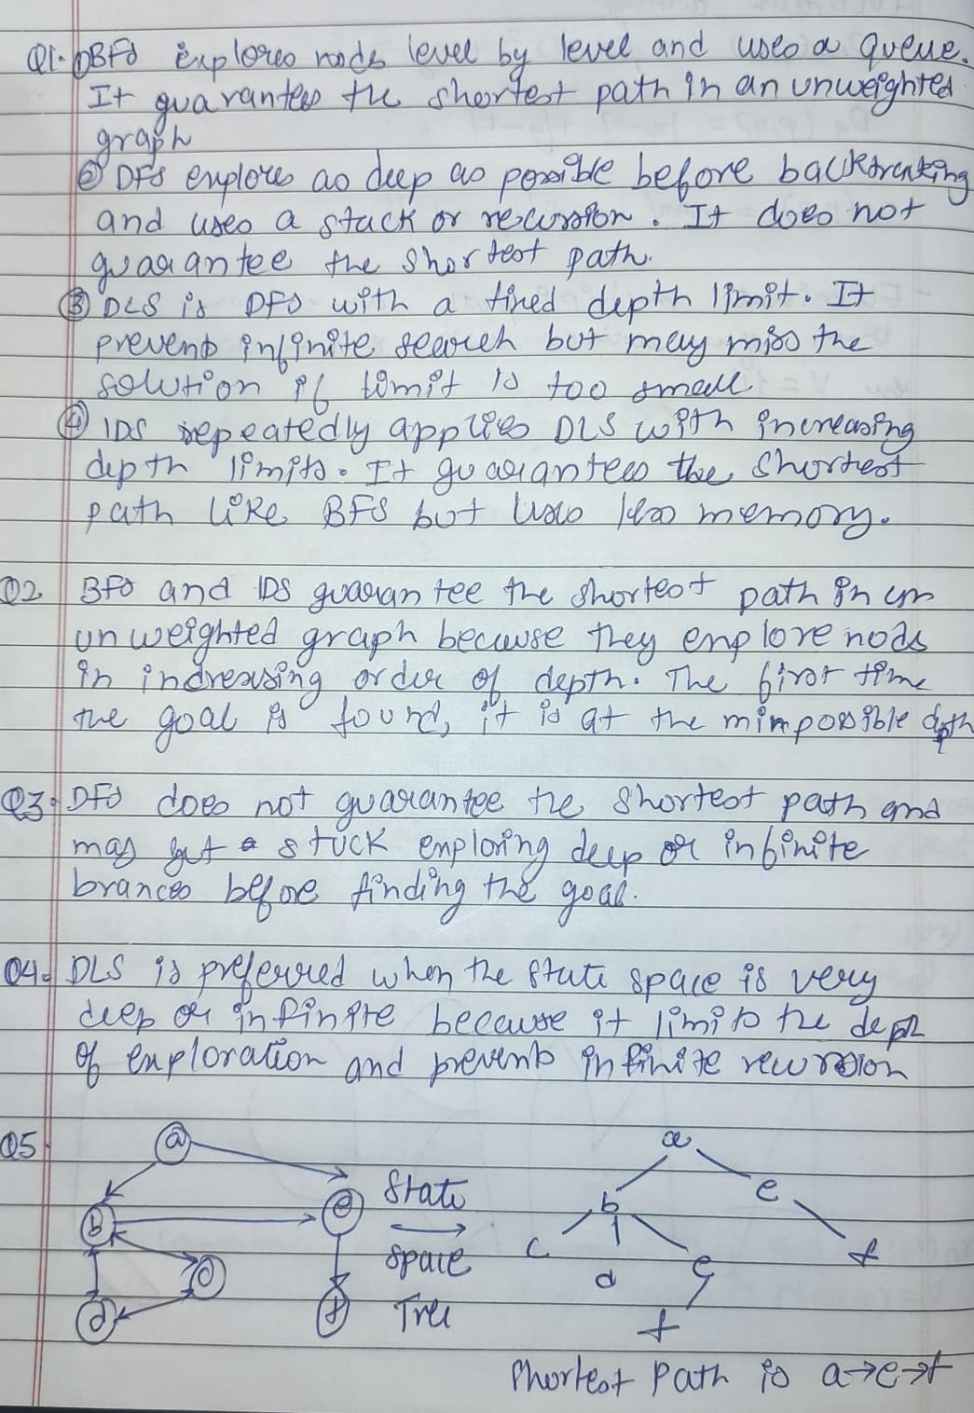 Q1. ① BFS explores nodes level by level and uses a queue.
It guarantees the shortest path in an unweighted
graph
② DFS explores as deep as possible before backtracking
and uses a stack or recursion. It does not
guarantee the shortest path.
③ DLS is DFS with a fixed depth limit. It
prevents infinite search but may miss the
solution if limit is too small
④ IDS repeatedly applies DLS with increasing
depth limits. It guarantees the shortest
path like BFS but uses less memory.
Q2 BFS and IDS guarantee the shortest path in an
unweighted graph because they explore nods
in increasing order of depth. The first time
the goal is found, it is at the min possible dpth
Q3. DFS does not guarantee the shortest path and
may get stuck exploring deep or infinite
brances before finding the goal.
Q4. DLS is preferred when the state space is very
deep or infinite because it limits the depth
of exploration and prevents infinite recursion
Q5
a a
State e
b e b
Space c f
c d e
d f Tree f
Shortest Path is a→e→f